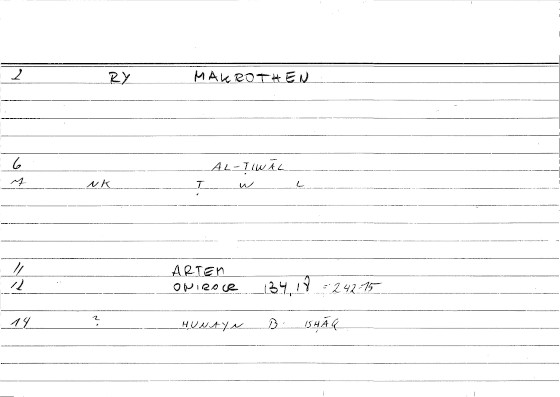 2 RY MAKROTHEN
6 AL-ṬIWĀL
7 NK Ṭ W L
11 ARTEM
12 ONIROCR 134,18 = 242.15
14 ? ḤUNAYN B. ISḤĀQ